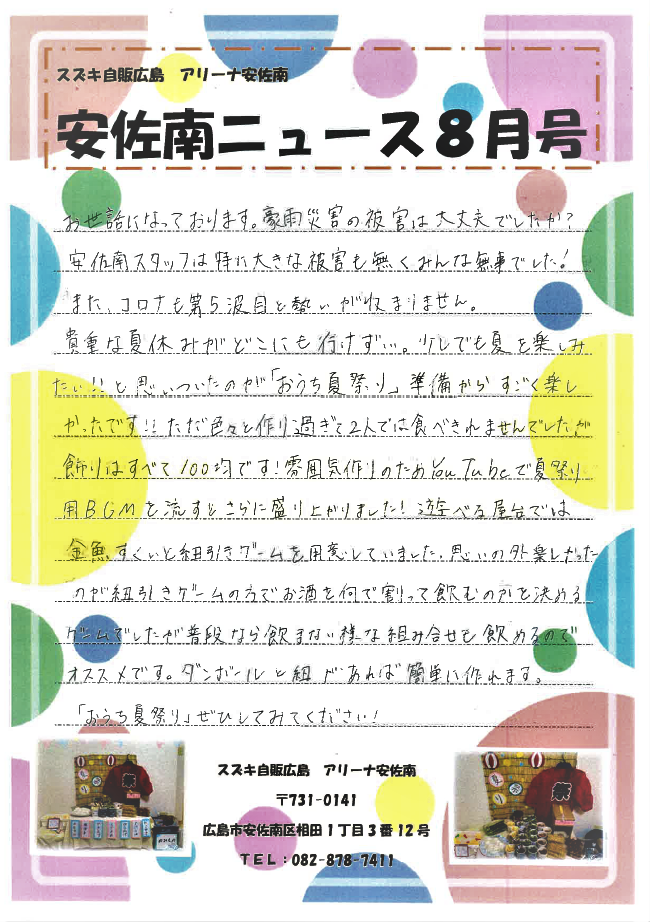 スズキ自販広島　アリーナ安佐南
安佐南ニュース８月号
お世話になっております。豪雨災害の被害は大丈夫でしたか？
安佐南スタッフは特に大きな被害も無くみんな無事でした！
また、コロナも第５波目と勢いが収まりません。
貴重な夏休みがどこにも行けずい。少しでも夏を楽しみ
たい！！と思いついたのが「おうち夏祭り」準備からすごく楽し
かったです！！ただ色々と作り過ぎて２人では食べきれませんでしたが
飾りはすべて１００均です！雰囲気作りのためYouTubeで夏祭り
用BGMを流すとさらに盛り上がりました！遊べる屋台では
金魚すくいと紐引きゲームを用意していました。思いの外楽しかった
のが紐引きゲームの方でお酒を何で割って飲むのかを決める
ゲームでしたが普段なら飲まない様な組み合せも飲めるので
オススメです。ダンボールと紐があれば簡単に作れます。
「おうち夏祭り」ぜひしてみてください！
スズキ自販広島　アリーナ安佐南
〒731-0141
広島市安佐南区相田１丁目３番１２号
ＴＥＬ：082-878-7411